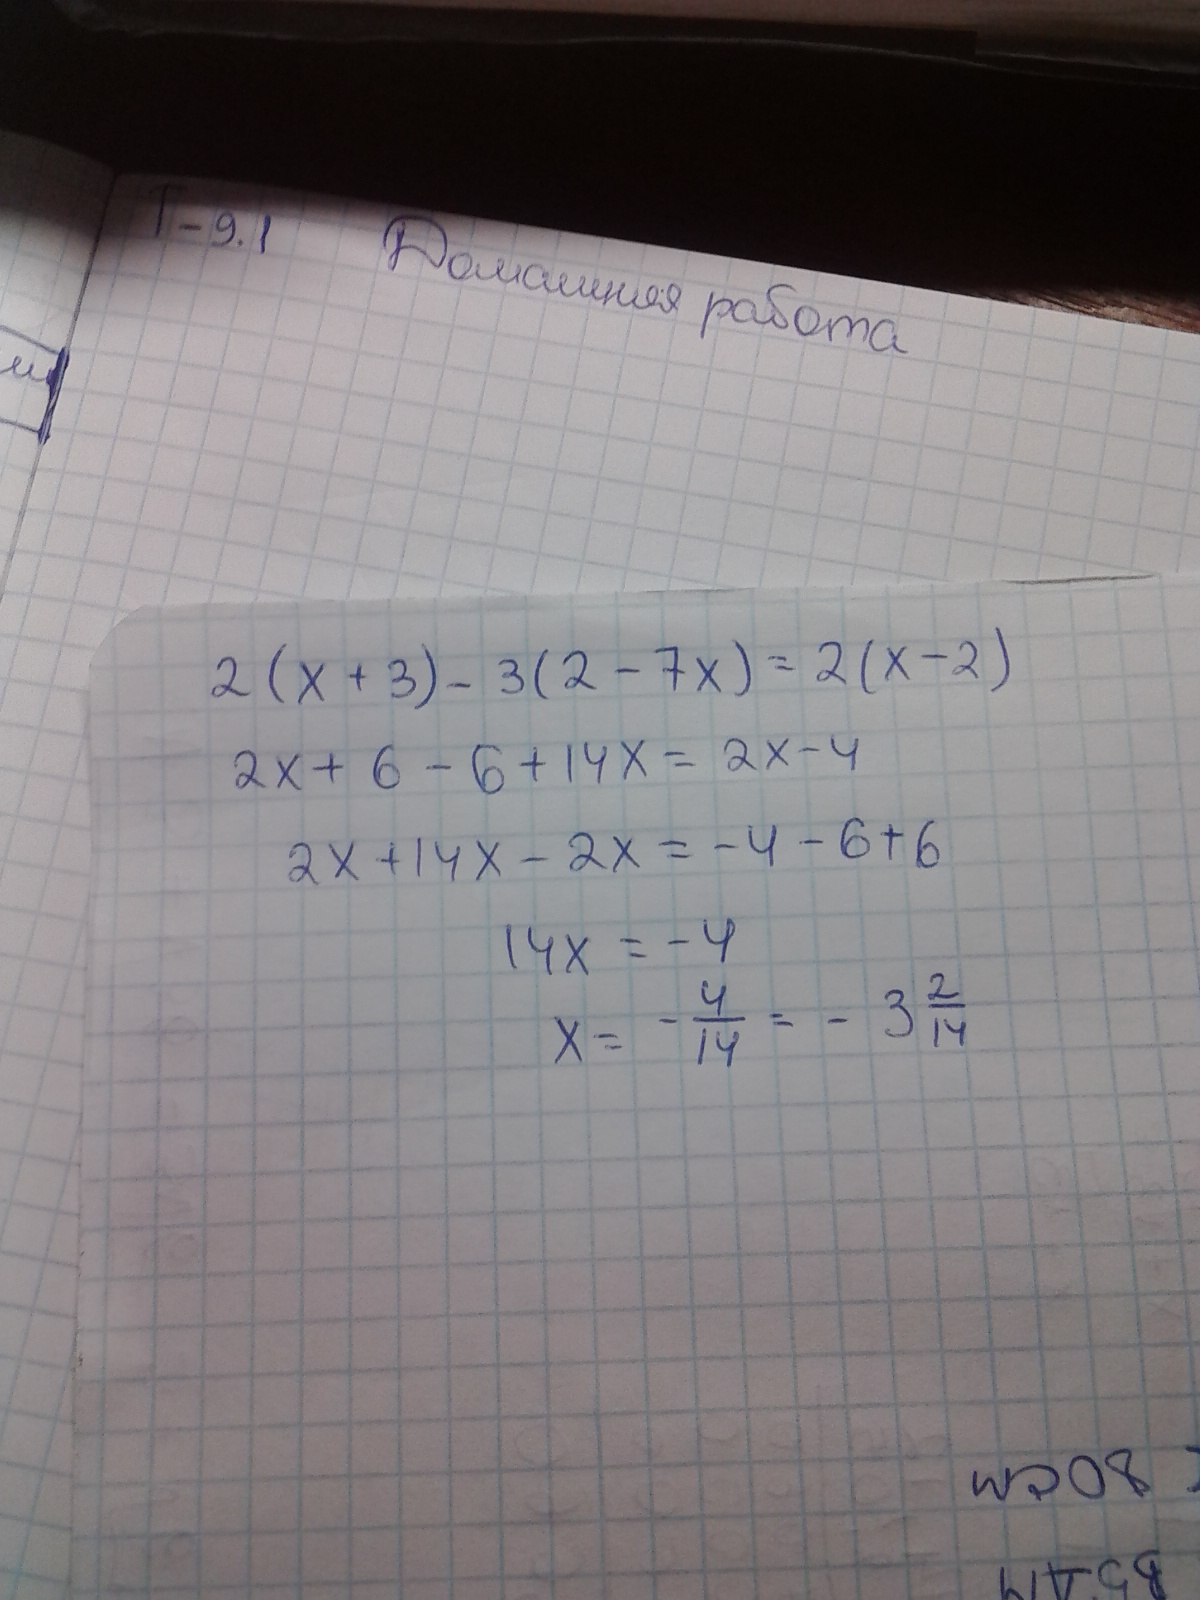 Т-9.1 Домашняя работа
2(x+3)-3(2-7x)=2(x-2)
2x+6-6+14x=2x-4
2x+14x-2x=-4-6+6
14x=-4
x=-4/14=-3 2/14
80см